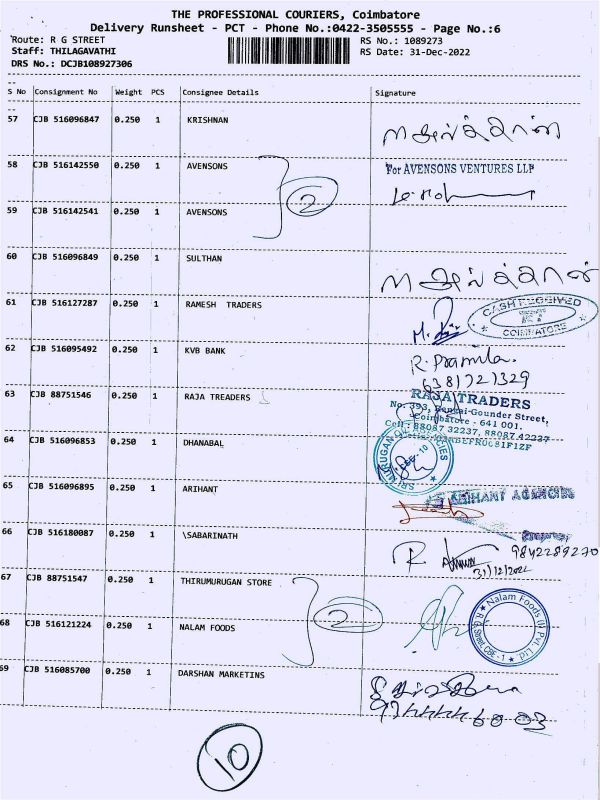 THE PROFESSIONAL COURIERS, Coimbatore
Delivery Runsheet - PCT - Phone No.:0422-3505555 - Page No.:6
Route: R G STREET RS No.: 1089273
Staff: THILAGAVATHI RS Date: 31-Dec-2022
DRS No.: DCJB108927306
S No Consignment No Weight PCS Consignee Details Signature
57 CJB 516096847 0.250 1 KRISHNAN
58 CJB 516142550 0.250 1 AVENSONS For AVENSONS VENTURES LLP
2
59 CJB 516142541 0.250 1 AVENSONS
60 CJB 516096849 0.250 1 SULTHAN
61 CJB 516127287 0.250 1 RAMESH TRADERS CASH RECEIVED
COIMBATORE
62 CJB 516095492 0.250 1 KVB BANK R. Pramila.
6381721329
63 CJB 88751546 0.250 1 RAJA TREADERS RAJA TRADERS
No: 393, Gounder Street,
Coimbatore - 641 001.
Cell : 88087 32237, 88087 42237
64 CJB 516096853 0.250 1 DHANABAL
65 CJB 516096895 0.250 1 ARIHANT ARIHANT AGENCIES
66 CJB 516180087 0.250 1 \SABARINATH 9842289270
31/12/2022
67 CJB 88751547 0.250 1 THIRUMURUGAN STORE
2 Nalam Foods (I) Pvt. Ltd
R.G. Street, CBE - 1
68 CJB 516121224 0.250 1 NALAM FOODS
69 CJB 516085700 0.250 1 DARSHAN MARKETINS
10